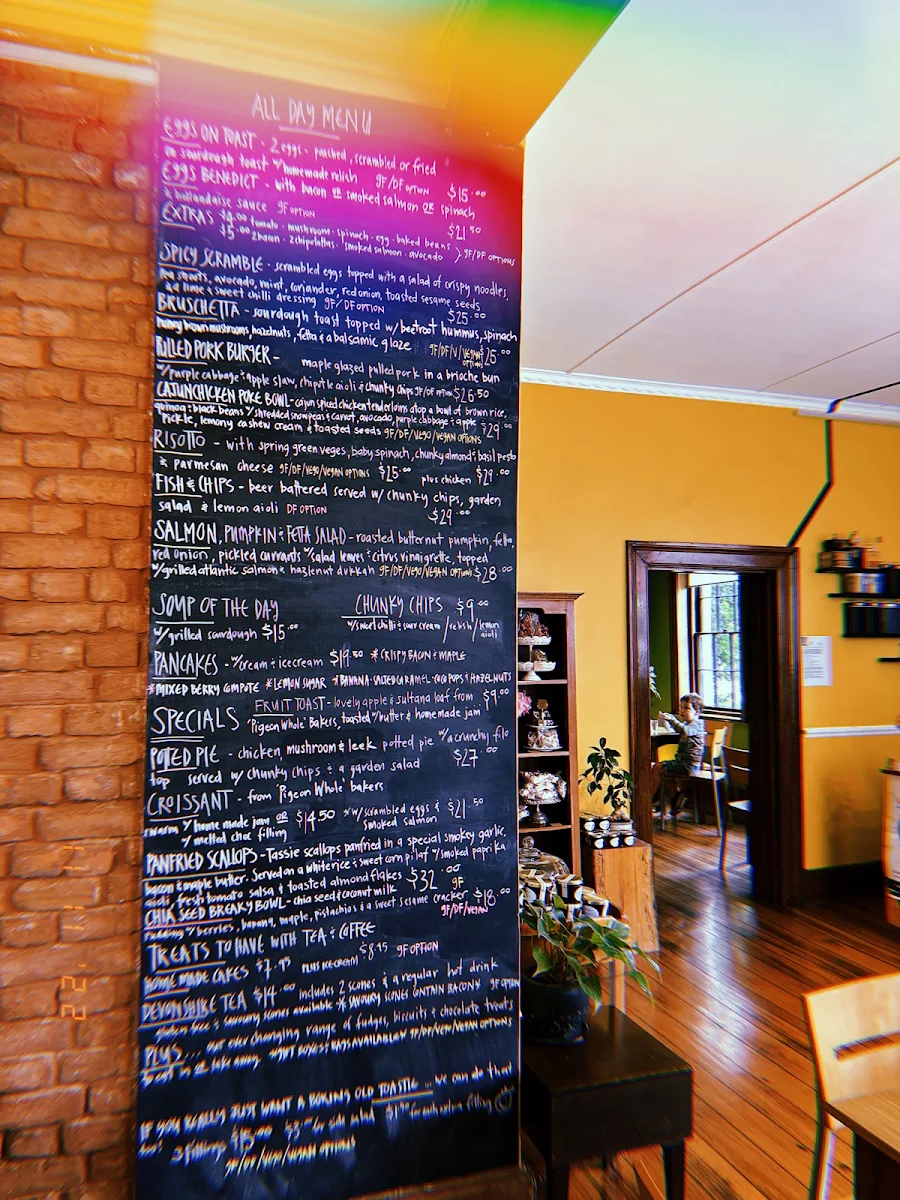 ALL DAY MENU
EGGS ON TOAST - 2 eggs - poached, scrambled or fried
on sourdough toast w/homemade relish GF/DF OPTION $15.00
EGGS BENEDICT - with bacon OR smoked salmon OR spinach
& hollandaise sauce GF OPTION $21.50
EXTRAS $4.00 tomato - mushroom - spinach - egg - baked beans
$5.00 2bacon - 2chipolattas - smoked salmon - avocado } GF/DF OPTIONS
SPICY SCRAMBLE - scrambled eggs topped with a salad of crispy noodles,
pea shoots, avocado, mint, coriander, red onion, toasted sesame seeds
& a lime & sweet chilli dressing GF/DF OPTION $25.00
BRUSCHETTA - sourdough toast topped w/beetroot hummus, spinach
honey brown mushrooms, hazelnuts, fetta & a balsamic glaze GF/DF/V/VEGAN OPTIONS $25.00
PULLED PORK BURGER - maple glazed pulled pork in a brioche bun
w/purple cabbage & apple slaw, chipotle aioli & chunky chips GF/DF OPTION $26.50
CAJUN CHICKEN POKE BOWL - cajun spiced chicken tenderloins atop a bowl of brown rice,
quinoa & black beans w/shredded snowpeas & carrot, avocado, purple cabbage & apple
pickle, lemony cashew cream & toasted seeds GF/DF/VEGO/VEGAN OPTIONS $29.00
RISOTTO - with spring green veges, baby spinach, chunky almond & basil pesto
& parmesan cheese GF/DF/VEGO/VEGAN OPTIONS $25.00 plus chicken $29.00
FISH & CHIPS - beer battered served w/ chunky chips, garden
salad & lemon aioli DF OPTION $29.00
SALMON, PUMPKIN & FETTA SALAD - roasted butternut pumpkin, fetta,
red onion, pickled currants w/salad leaves & citrus vinaigrette, topped
w/grilled atlantic salmon & hazelnut dukkah GF/DF/VEGO/VEGAN OPTIONS $28.00
SOUP OF THE DAY CHUNKY CHIPS $9.00
w/grilled sourdough $15.00 w/sweet chilli & sour cream / relish / lemon aioli
PANCAKES - w/cream & icecream $19.50 *CRISPY BACON & MAPLE
*MIXED BERRY COMPOTE *LEMON SUGAR *BANANA SALTED CARAMEL COCO POPS & HAZELNUTS
FRUIT TOAST - lovely apple & sultana loaf from $9.00
SPECIALS 'Pigeon Whole' Bakers, toasted w/butter & homemade jam
POTTED PIE - chicken mushroom & leek potted pie w/a crunchy filo
top served w/ chunky chips & a garden salad $27.00
CROISSANT - from 'Pigeon Whole' bakers
warm w/home made jam OR $14.50 *w/scrambled eggs & $21.50
w/melted choc filling smoked salmon
PANFRIED SCALLOPS - Tassie scallops panfried in a special smokey garlic,
bacon & maple butter. Served on a white rice & sweet corn pilaf w/smoked paprika
aioli, fresh tomato salsa & toasted almond flakes $32.00 GF
CHIA SEED BREAKY BOWL - chia seed & coconut milk $18.00
pudding w/berries, banana, maple, pistachios & a sweet sesame cracker GF/DF/VEGAN
TREATS TO HAVE WITH TEA & COFFEE
HOME MADE CAKES $7.95 PLUS ICECREAM $8.95 GF OPTION
DEVONSHIRE TEA $14.00 includes 2 scones & a regular hot drink GF OPTION
gluten free & savoury scones available *SAVOURY SCONES CONTAIN BACON*
PLUS... our ever changing range of fudges, biscuits & chocolate treats
to eat in or take away. GIFT BOXES & BAGS AVAILABLE GF/DF/VEGO/VEGAN OPTIONS
IF YOU REALLY JUST WANT A BORING OLD TOASTIE... we can do that
too! 2 fillings $15.00 $3.00 for side salad $1.00 for each extra filling
GF/DF/VEGO/VEGAN OPTIONS